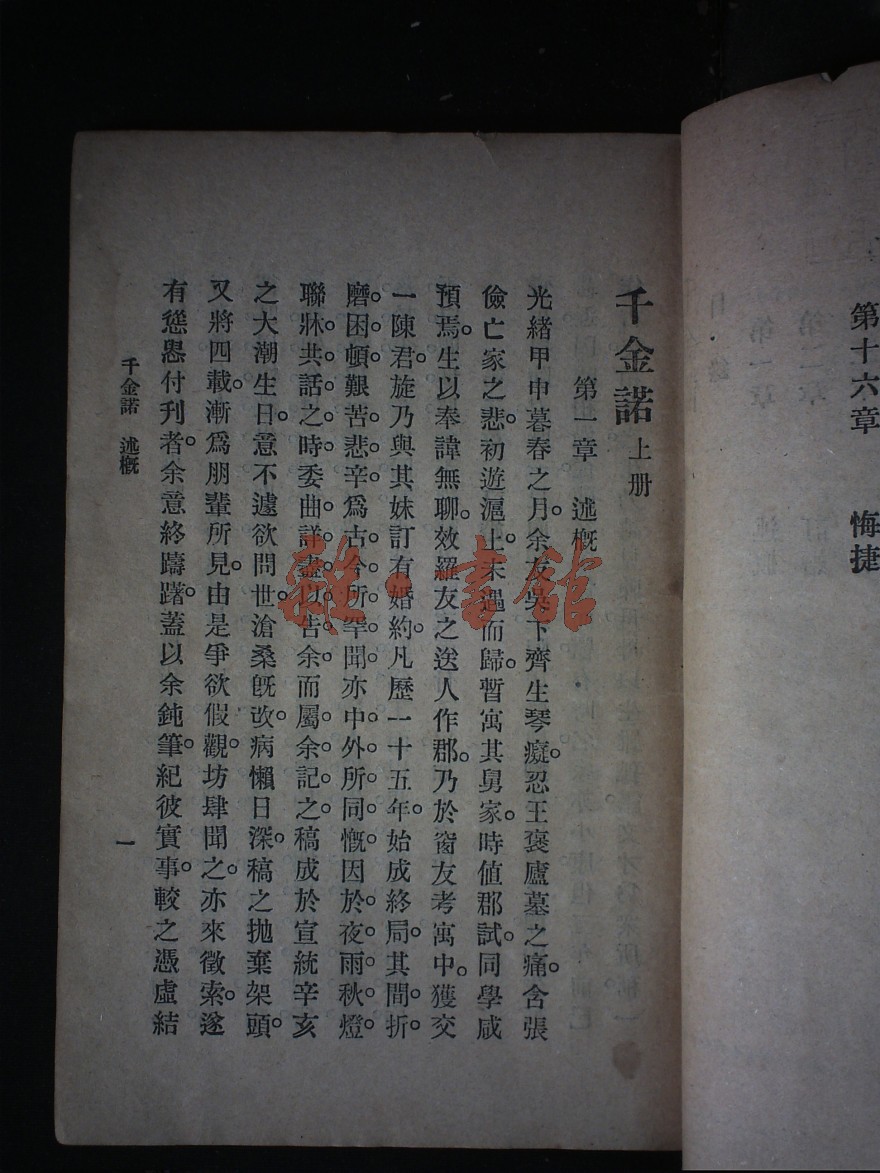 第十六章　悔捷
千金諾 上册
第一章　述概
光緒甲申暮春之月。余友吳下齊生琴癡。忍王裒廬墓之痛。含張
儉亡家之悲。初遊滬上。未遇而歸。暫寓其舅家。時值郡試。同學咸
預焉。生以奉諱無聊。效羅友之送人作郡。乃於窗友考寓中。獲交
一陳君。旋乃與其妹訂有婚約。凡歷一十五年。始成終局。其間折
磨。困頓艱苦。悲辛。爲古今所罕聞。亦中外所同慨。因於夜雨秋燈。
聯牀共話之時。委曲詳盡。以告余而屬余記之。稿成於宣統辛亥
之大潮生日。意不遽欲問世。滄桑既改。病懶日深。稿之抛棄架頭。
又將四載。漸爲朋輩所見。由是爭欲假觀。坊肆聞之。亦來徵索。遂
有慫恿付刋者。余意終躊躇。蓋以余鈍筆。紀彼實事。較之憑虛結
千金諾　述概
一
雜·書館